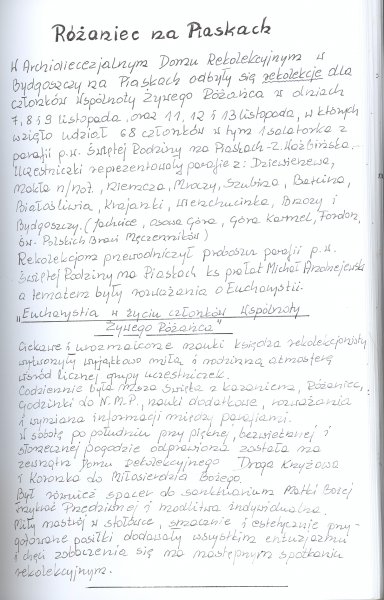 Różaniec na Piaskach
W Archidiecezjalnym Domu Rekolekcyjnym w
Bydgoszczy na Piaskach odbyły się rekolekcje dla
członków Wspólnoty Żywego Różańca w dniach
7, 8 i 9 listopada, oraz 11, 12 i 13 listopada, w których
wzięło udział 68 członków w tym 1 zelatorka z
parafii p.w. Świętej Rodziny na Piaskach - Z. Woźbińska.
Uczestniczki reprezentowały parafie z: Dziewierzewa,
Nakła n/Not, Kcyni, Mroczy, Szubina, Barcina,
Białośliwia, Krajenki, Wierzchucinka, Brzozy i
Bydgoszczy. (Jachcice, Osowa Góra, Góra Karmel, Fordon,
św. Polskich Braci Męczenników)
Rekolekcjom przewodniczył proboszcz parafii p.w.
Świętej Rodziny na Piaskach ks prałat Michał Andrzejewski
a tematem były rozważania o Eucharystii.
„Eucharystia w życiu członków Wspólnoty
Żywego Różańca"
Ciekawe i urozmaicone nauki księdza rekolekcjonisty
wytworzyły wyjątkowo miłą i rodzinną atmosferę
wśród licznej grupy uczestniczek.
Codziennie była msza święta z kazaniem, Różaniec,
godzinki do N.M.P., nauki dodatkowe, rozważania
i wymiana informacji między parafiami.
W sobotę po południu przy pięknej, bezwietrznej i
słonecznej pogodzie odprawiona została na
zewnątrz Domu Rekolekcyjnego Droga Krzyżowa
i Koronka do Miłosierdzia Bożego.
Był również spacer do sanktuarium Matki Bożej
Trzykroć Przedziwnej i modlitwa indywidualna.
Miły nastrój w stołówce, smacznie i estetycznie przy-
gotowane posiłki dodawały wszystkim entuzjazmu
i chęci zobaczenia się na następnym spotkaniu
rekolekcyjnym.